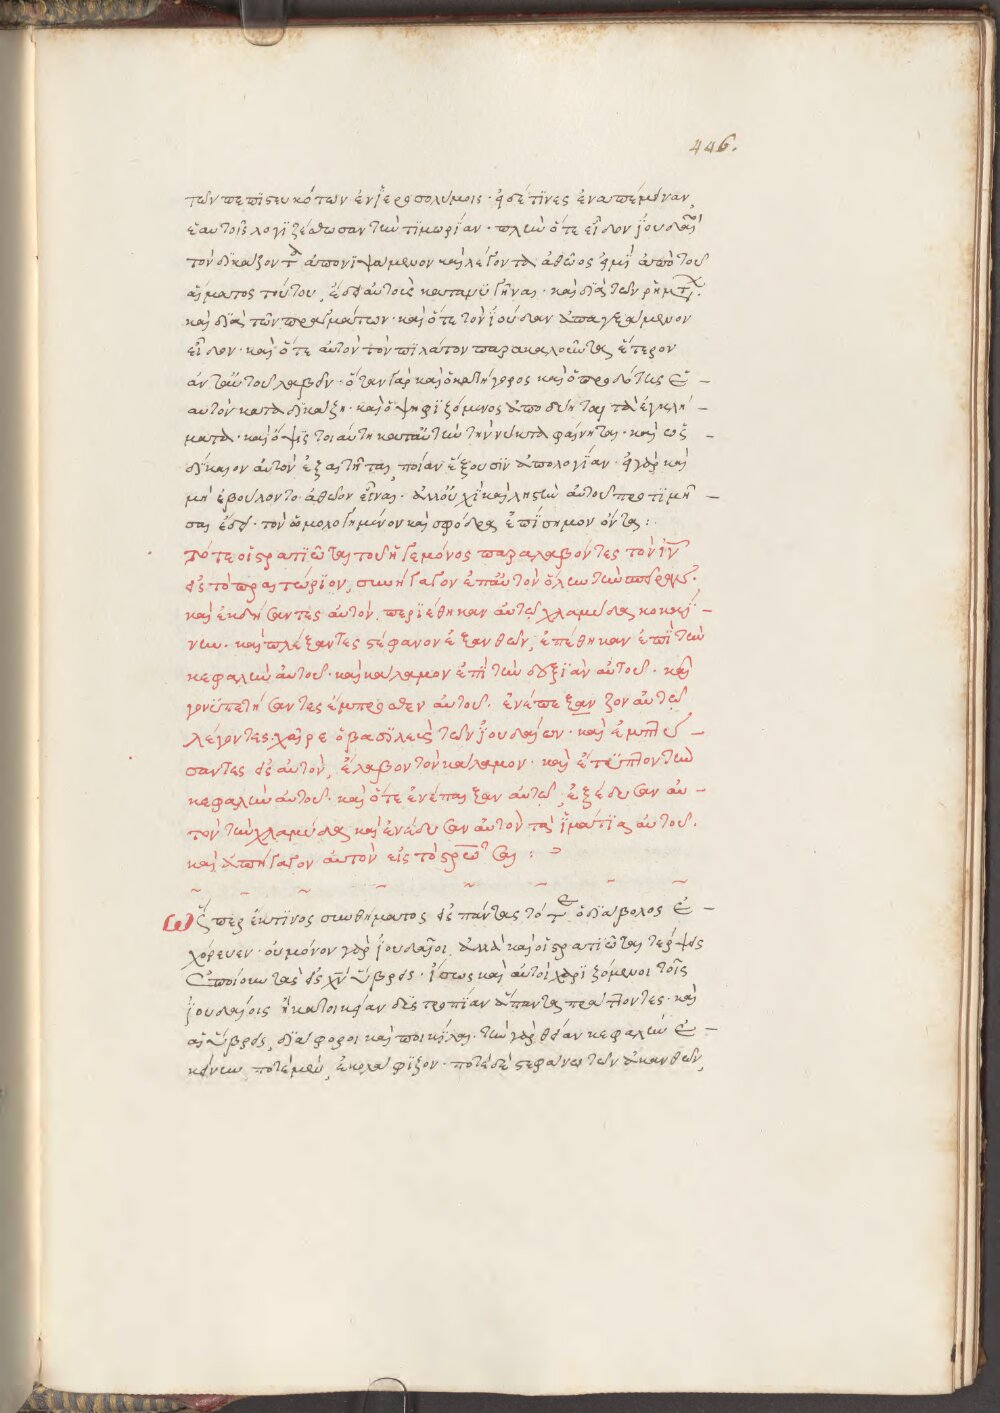 446.
τῶν πεπϊστευκότων ἐν ἱεροσολύμοις · εἰ δέ τϊνες ἐναπέμειναν,
ἑαυτοῖς λογϊζέσθωσαν τὴν τϊμωρίαν · πλὴν ὅτε εἶδον ἰουδαῖοι
τὸν δϊκάζοντα ἀπονϊψάμενον καὶ λέγοντα ἀθῶος εἰμϊ ἀπὸ τοῦ
αἵματος τούτου, ἔδει αὐτοὺς κατανυγῆναι · καὶ δϊὰ τῶν ῥημάτων ·
καὶ δϊὰ τῶν πραγμάτων · καὶ ὅτε τὸν ἰούδαν ἀπαγξάμενον
εἶδον · καὶ ὅτε αὐτὸν τὸν πϊλάτον παρακαλοῦντα, ἕτερον
ἀντ' αὐτοῦ λαβεῖν · ὅταν γὰρ καὶ ὁ κατήγορος καὶ ὁ προδότης ἑ –
αυτὸν καταδϊκάζη · καὶ ὁ ψηφϊζόμενος ἀποδύηται τὰ ἐγκλή –
ματα · καὶ ὄψϊς τοιαύτη κατ' αὐτὴν τὴν νύκτα φαίνηται · καὶ ὡς –
δίκαιον αὐτὸν ἐξαιτῆται, ποίαν ἕξουσϊν ἀπολογίαν · εἰ γὰρ καὶ
μὴ ἐβούλοντο ἀθῶον εἶναι · ἀλλ' οὐχὶ καὶ ληστὴν αὐτοῦ προτϊμῆ –
σαι ἔδει · τὸν ὡμολογημένον καὶ σφόδρα ἐπίσημον ὄντα :
τότε οἱ στρατιῶται τοῦ ἡγεμόνος παραλαβόντες τὸν ἰν̅
εἰς τὸ πραιτώριον, συνήγαγον ἐπ' αὐτὸν ὅλην τὴν σπεῖραν ·
καὶ ἐκδύσαντες αὐτὸν, περϊέθηκαν αὐτῷ χλαμύδα κοκκί –
νην · καὶ πλέξαντες στέφανον ἐξ ἀκανθῶν, ἐπέθηκαν ἐπὶ τὴν
κεφαλὴν αὐτοῦ · καὶ κάλαμον ἐπὶ τὴν δεξϊὰν αὐτοῦ · καὶ
γονϋπετήσαντες ἔμπροσθεν αὐτοῦ · ἐνέπαιζον αὐτῷ
λέγοντες · χαῖρε ὁ βασϊλεὺς τῶν ἰουδαίων · καὶ ἐμπτύ –
σαντες εἰς αὐτὸν, ἔλαβον τὸν κάλαμον · καὶ ἔτυπτον τὴν
κεφαλὴν αὐτοῦ · καὶ ὅτε ἐνέπαιξαν αὐτῷ, ἐξέδυσαν αὐ –
τὸν τὴν χλαμύδα, καὶ ἐνέδυσαν αὐτὸν τὰ ἱμάτϊα αὐτοῦ ·
καὶ ἀπήγαγον αὐτὸν εἰς τὸ σταυρῶσαι :
Ὥσπερ ἔκ τϊνος συνθήματος εἰς πάντας τότε ὁ δϊάβολος ἐ –
χόρευεν · οὐ μόνον γὰρ ἰουδαῖοι ἀλλὰ καὶ οἱ στρατιῶται τέρψεις
ἐποίουν τὰς εἰς χν̅ ὕβρεις · ἴσως καὶ αὐτοὶ χαρϊζόμενοι τοῖς
ἰουδαίοις ἢ κατ' οἰκείαν δϋστροπίαν ἅπαντα πράττοντες · καὶ
αἱ ὕβρεις, δϊάφοροι καὶ ποικίλαι · τὴν γὰρ θείαν κεφαλὴν ἐ –
κείνην, ποτὲ μὲν, ἐκολάφϊζον · ποτὲ δὲ στεφάνω τῶν ἀκανθῶν,